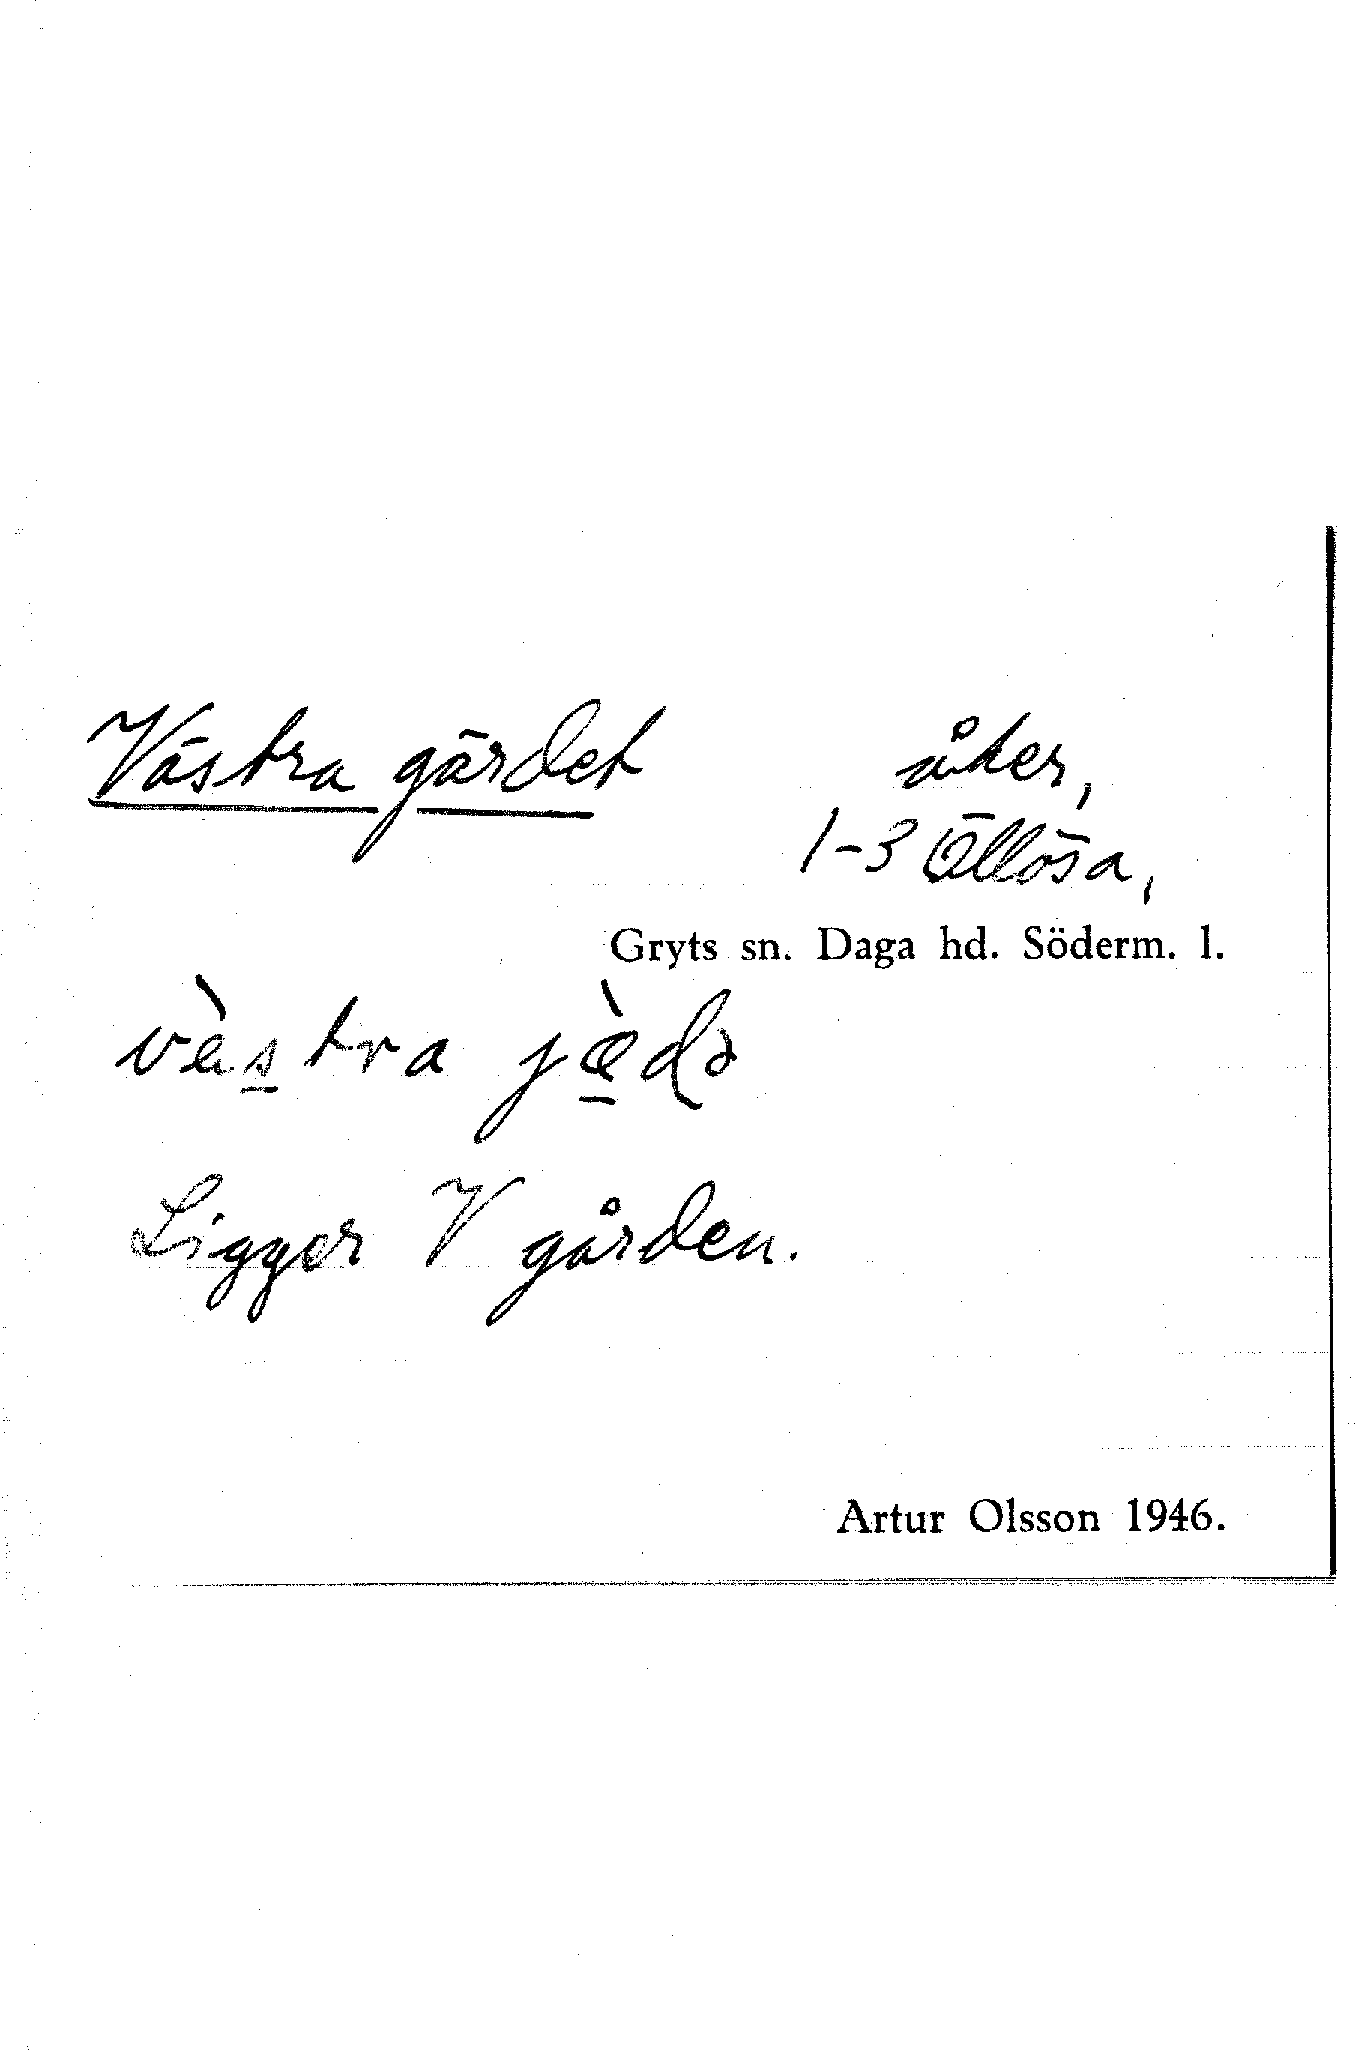 Västra gärdet åker,
1-3 Öllösa,
Gryts sn. Daga hd. Söderm. l.
vä̀stra jæ̀də
Ligger V gården.
Artur Olsson 1946.